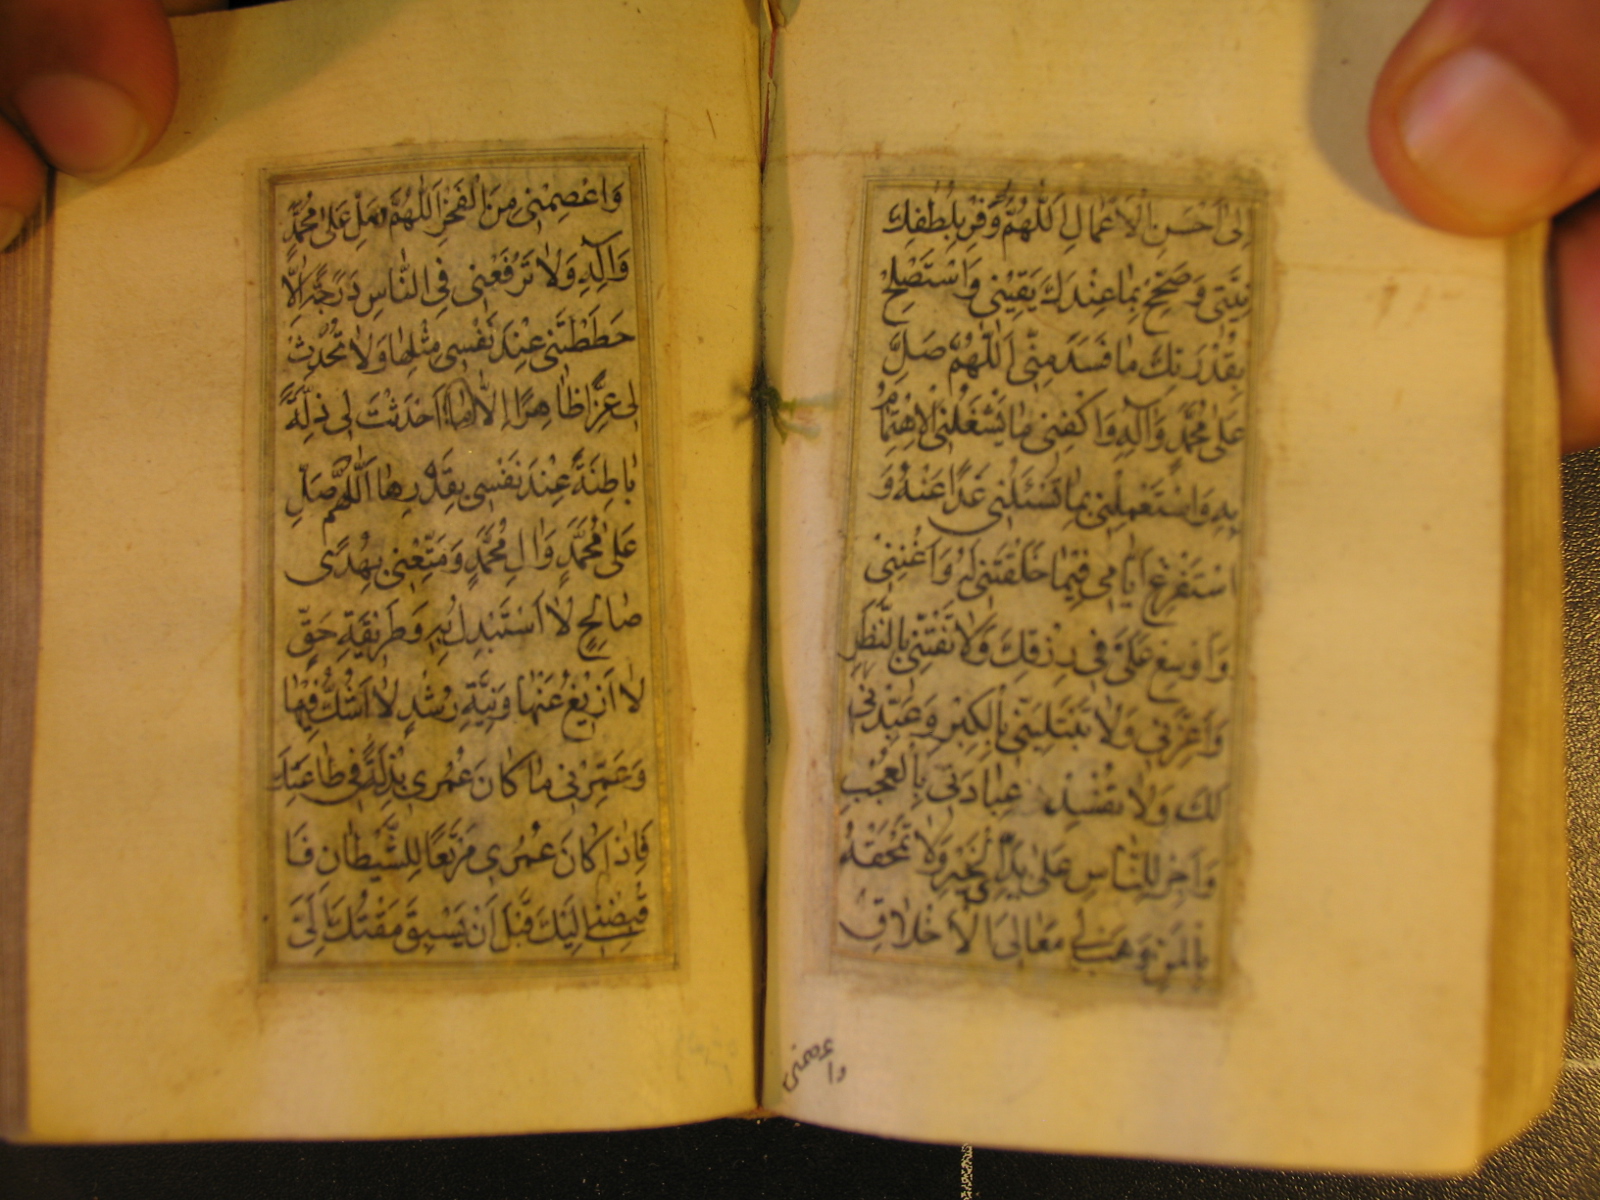 اِلىٰ اَحْسَنِ الْاَعْمٰالِ اَللّٰهُمَّ وَفِّرْ بِلُطْفِكَ
نِيَّتى وَصَحِّحْ بِمٰا عِنْدَكَ يَقينى وَاسْتَصْلِحْ
بِقُدْرَتِكَ مٰا فَسَدَ مِنّى اَللّٰهُمَّ صَلِّ
عَلىٰ مُحَمَّدٍ وَآلِهِ وَاكْفِنى مٰا يَشْغَلُنِى الْاِهْتِمٰامُ
بِهِ وَاسْتَعْمِلْنى بِمٰا تَسْئَلُنى غَدًا عَنْهُ وَ
اسْتَفْرِغْ اَيّٰامى فيمٰا خَلَقْتَنى لَهُ وَاَغْنِنى
وَاَوْسِعْ عَلَىَّ فى رِزْقِكَ وَلاٰ تَفْتِنّى بِالنَّظَرِ
وَاَعِزَّنى وَلاٰ تَبْتَلِيَنّى بِالْكِبْرِ وَعَبِّدْنى
لَكَ وَلاٰ تُفْسِدْ عِبٰادَتى بِالْعُجْبِ
وَاَجْرِ لِلنّٰاسِ عَلىٰ يَدِىَ الْخَيْرَ وَلاٰ تَمْحَقْهُ
بِالْمَنِّ وَهَبْ لى مَعٰالِىَ الْاَخْلاٰقِ
واعصمنى
وَاعْصِمْنى مِنَ الْفَخْرِ اَللّٰهُمَّ صَلِّ عَلىٰ مُحَمَّدٍ
وَآلِهِ وَلاٰ تَرْفَعْنى فِى النّٰاسِ دَرَجَةً اِلّٰا
حَطَطْتَنى عِنْدَ نَفْسى مِثْلَهٰا وَلاٰ تُحْدِثْ
لى عِزًّا ظٰاهِرًا اِلّٰا اَحْدَثْتَ لى ذِلَّةً
بٰاطِنَةً عِنْدَ نَفْسى بِقَدَرِهٰا اَللّٰهُمَّ صَلِّ
عَلىٰ مُحَمَّدٍ وَآلِ مُحَمَّدٍ وَمَتِّعْنى بِهُدًى
صٰالِحٍ لاٰ اَسْتَبْدِلُ بِهِ وَطَريقَةِ حَقٍّ
لاٰ اَزيغُ عَنْهٰا وَنِيَّةِ رُشْدٍ لاٰ اَشُكُّ فيهٰا
وَعَمِّرْنى مٰا كٰانَ عُمْرى بِذْلَةً فى طٰاعَتِكَ
فَاِذٰا كٰانَ عُمْرى مَرْتَعًا لِلشَّيْطٰانِ فَا
قْبِضْنى اِلَيْكَ قَبْلَ اَنْ يَسْبِقَ مَقْتُكَ اِلَىَّ